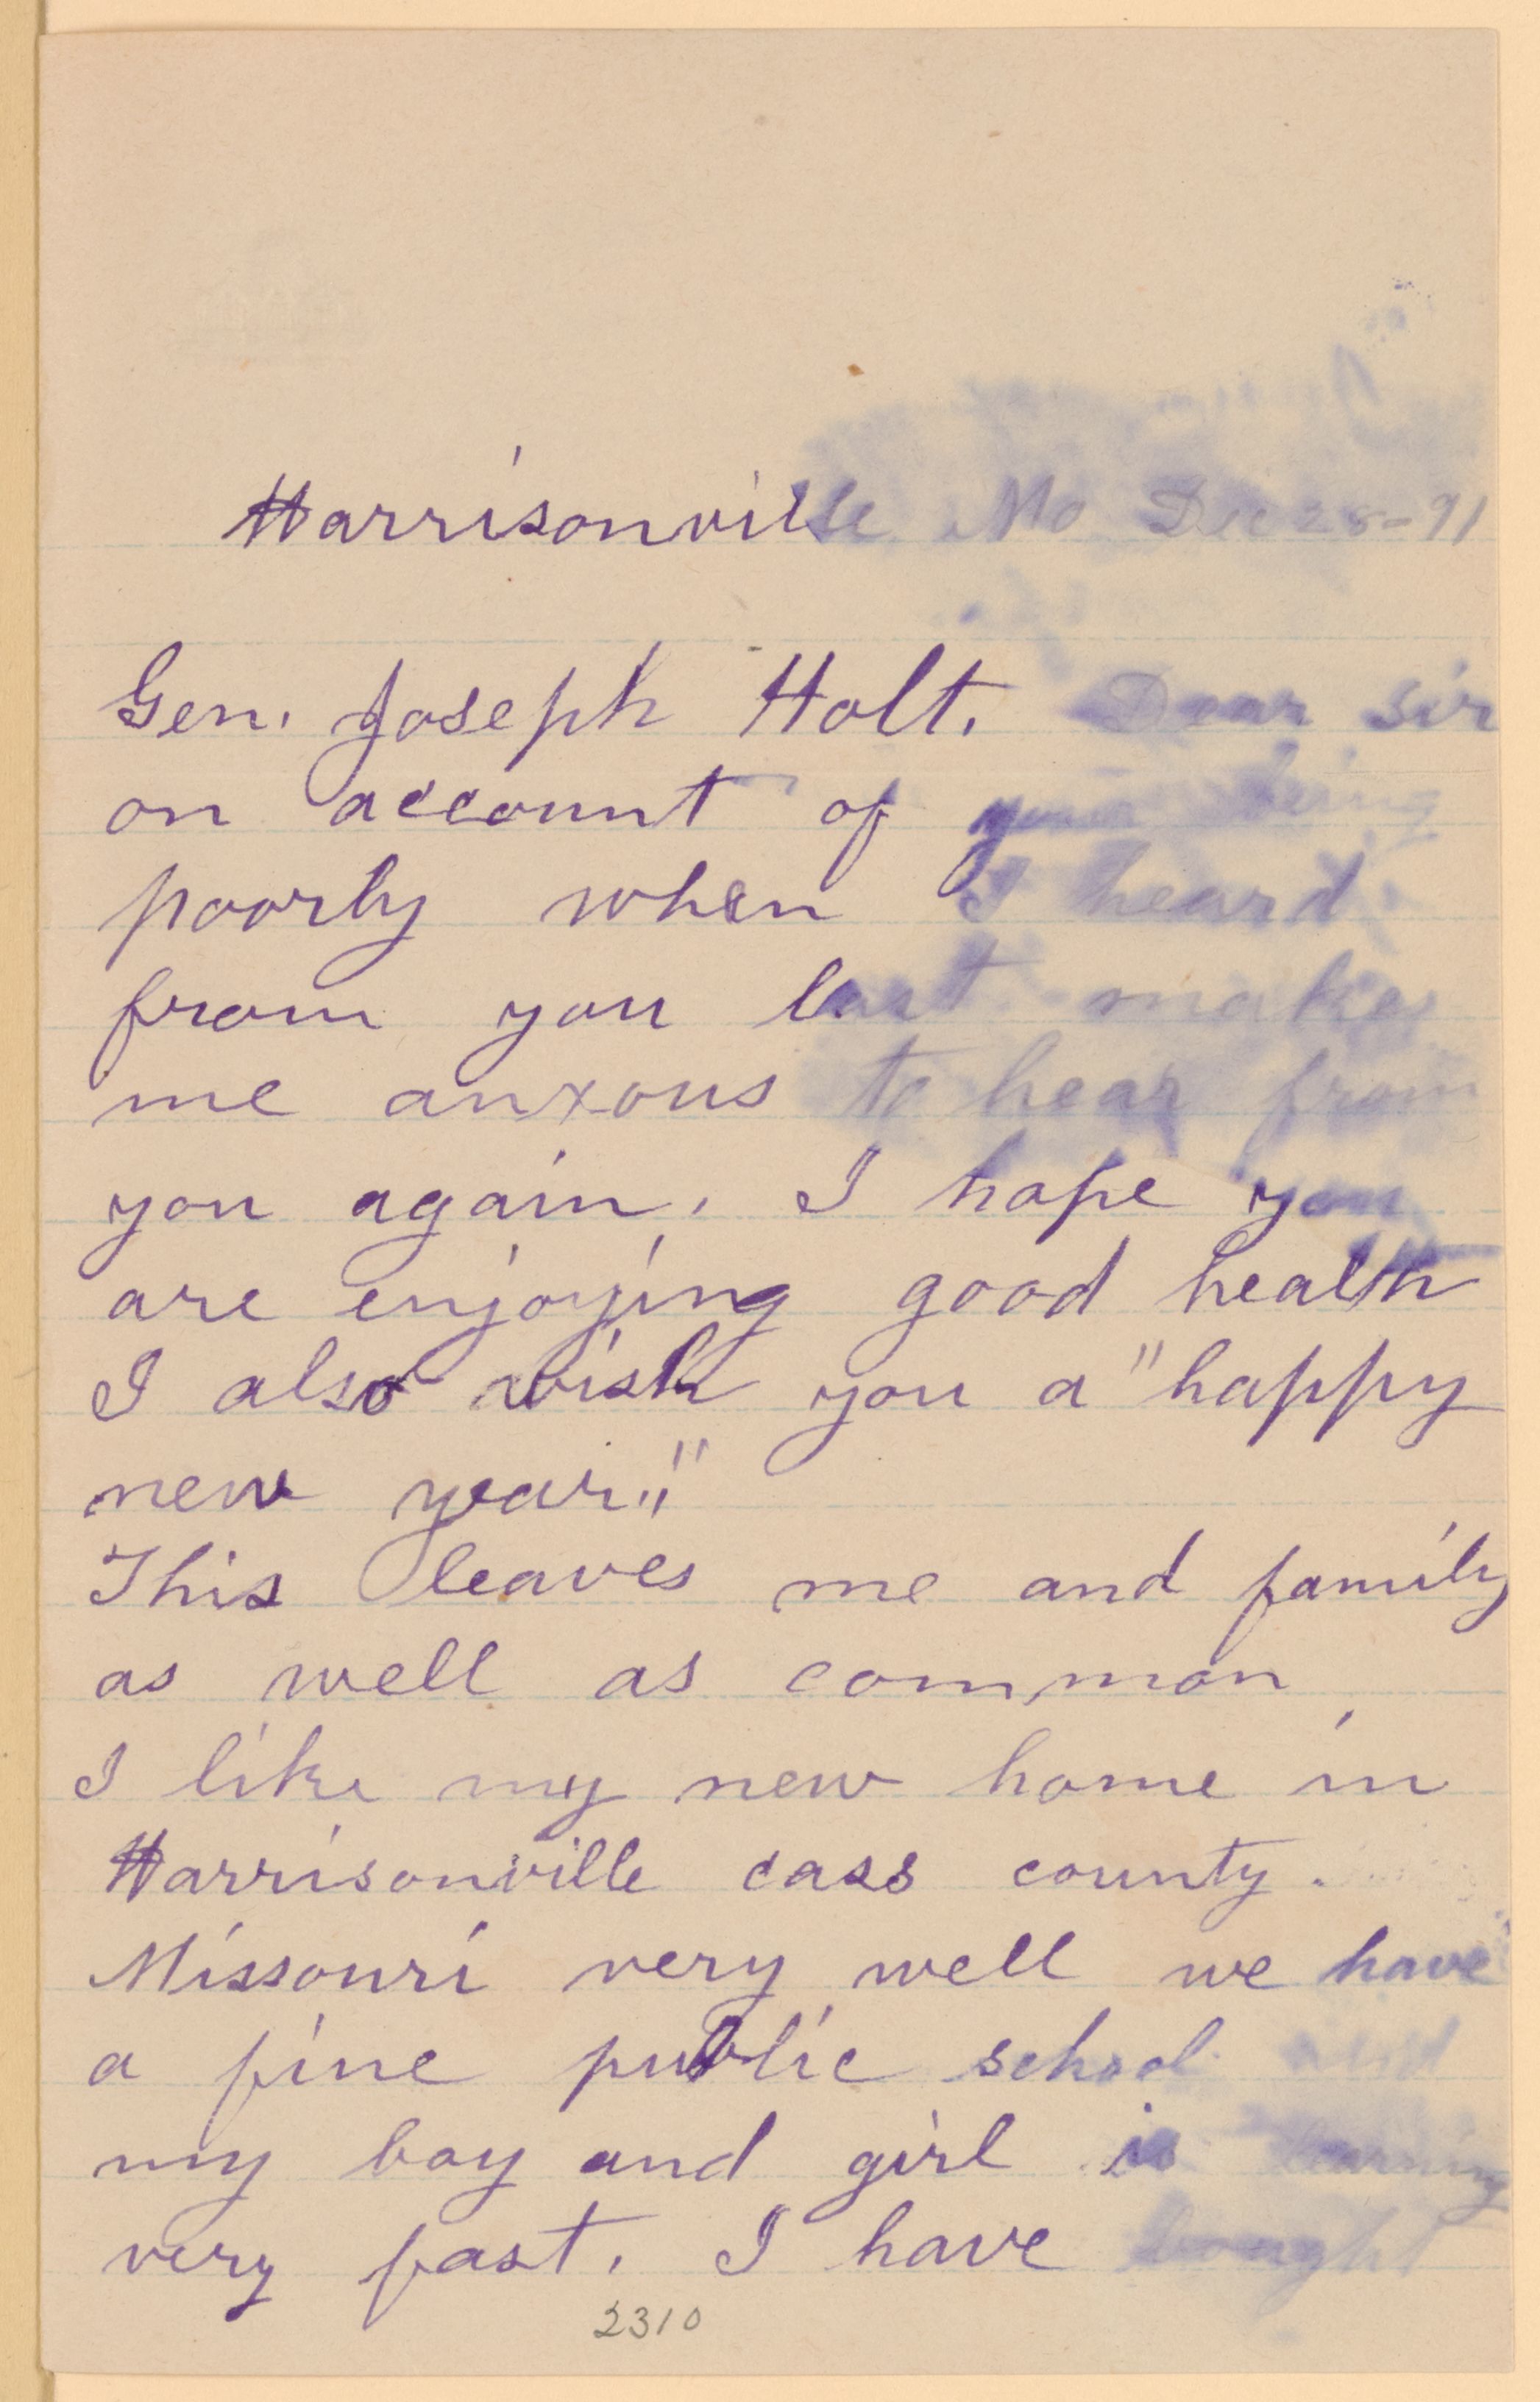 Harrisonville Mo Dec 28-91
Gen. Joseph Holt. Dear sir
on account of your being
poorly when I heard
from you last makes
me anxous to hear from
you again. I hope you
are enjoying good health
I also wish you a "happy
new year."
This leaves me and family
as well as common
I like my new home in
Harrisonville cass county.
Missouri very well we have
a fine public school and
my boy and girl is learning
very fast. I have bought
2310